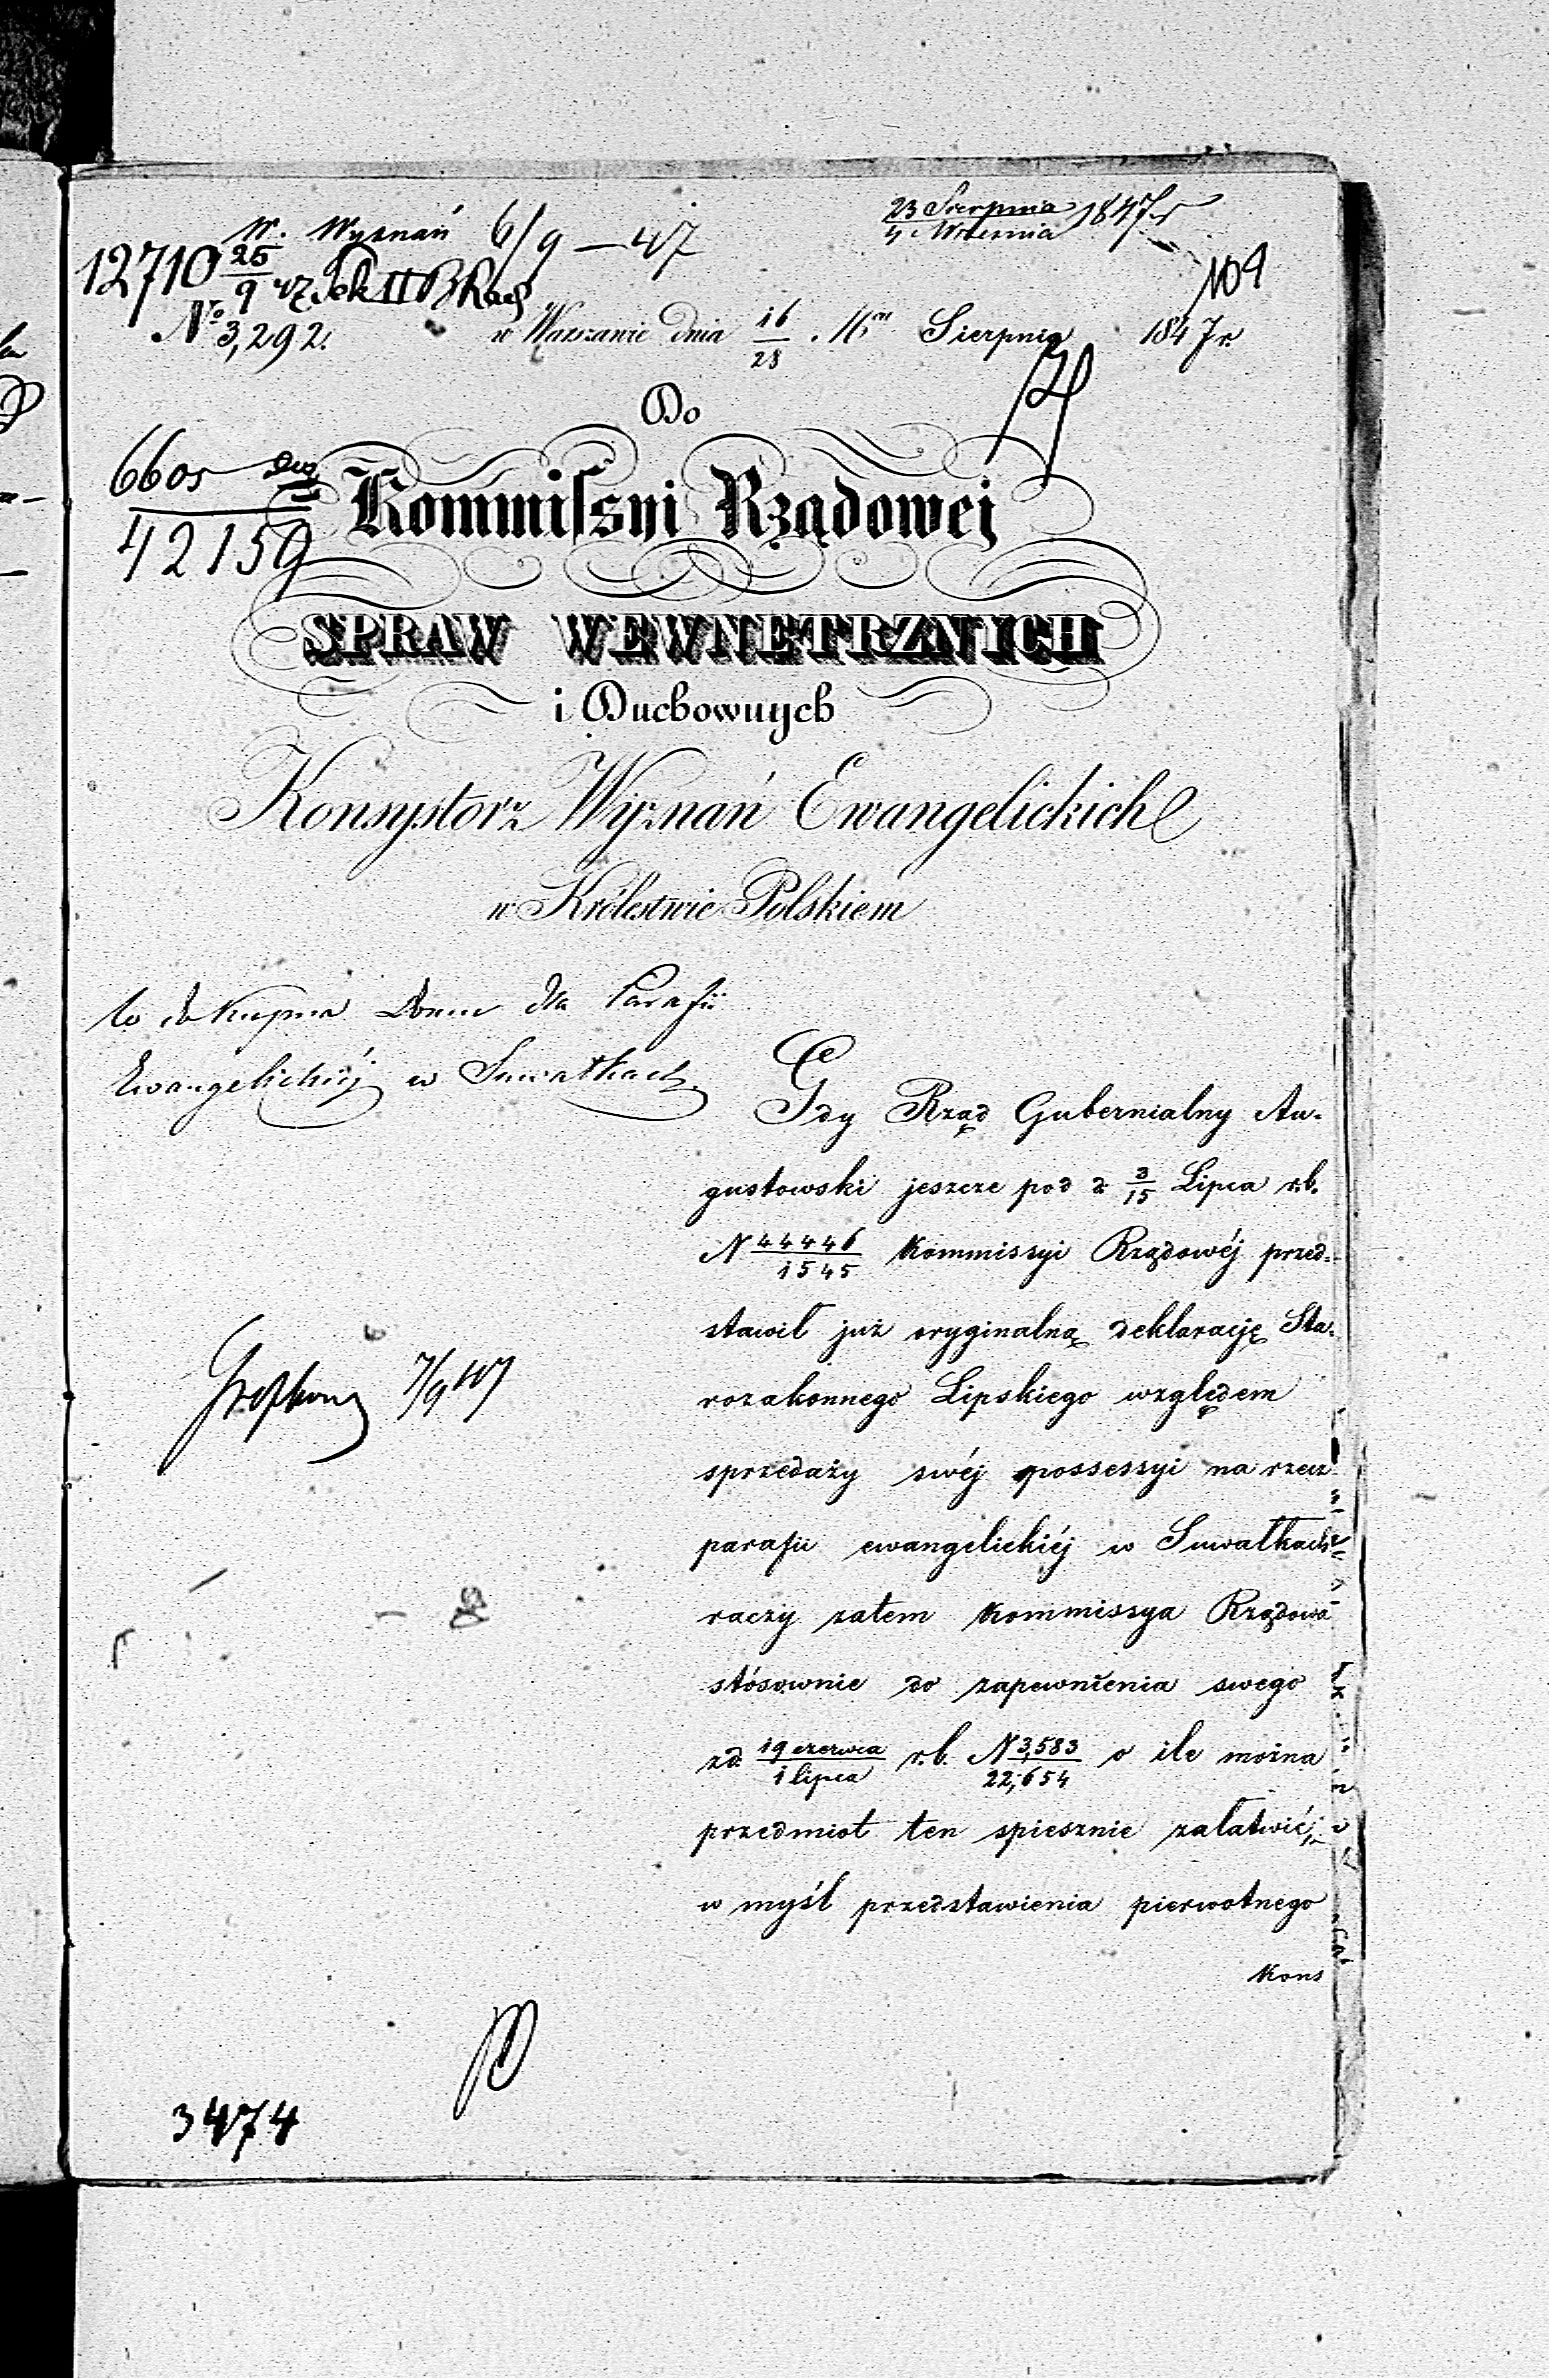 W. Wyznań 6/9 – 47
23 Sierpnia / 4 Września 1847 r
12710 25/9 47 Sek II
109
No 3,292.
w Warszawie dnia 16/28 Sierpnia 1847 r.
Do
6605
42159
Kommissyi Rządowej
SPRAW WEWNETRZNYCH
i Duchownych
Konsystorz Wyznań Ewangelickich
w Królestwie Polskiem
Co do kupna Domu dla Parafii
Ewangelickiéj w Suwałkach
Gdy Rząd Gubernialny Au-
gustowski jeszcze pod d 3/15 Lipca r.b.
N 44446/1545 Kommissyi Rządowéj przed-
stawił już oryginalną deklarację Sta-
rozakonnego Lipskiego względem
sprzedaży swéj possessyi na rzecz
parafii ewangelickiéj w Suwałkach
raczy zatem Kommissya Rządowa
stósownie do zapewnienia swego
zd. 19 czerwca / 1 lipca r.b. N 3,583/22,654 o ile można
przedmiot ten spiesznie załatwić,
w myśl przedstawienia pierwotnego
Kons
7/9 47
3474